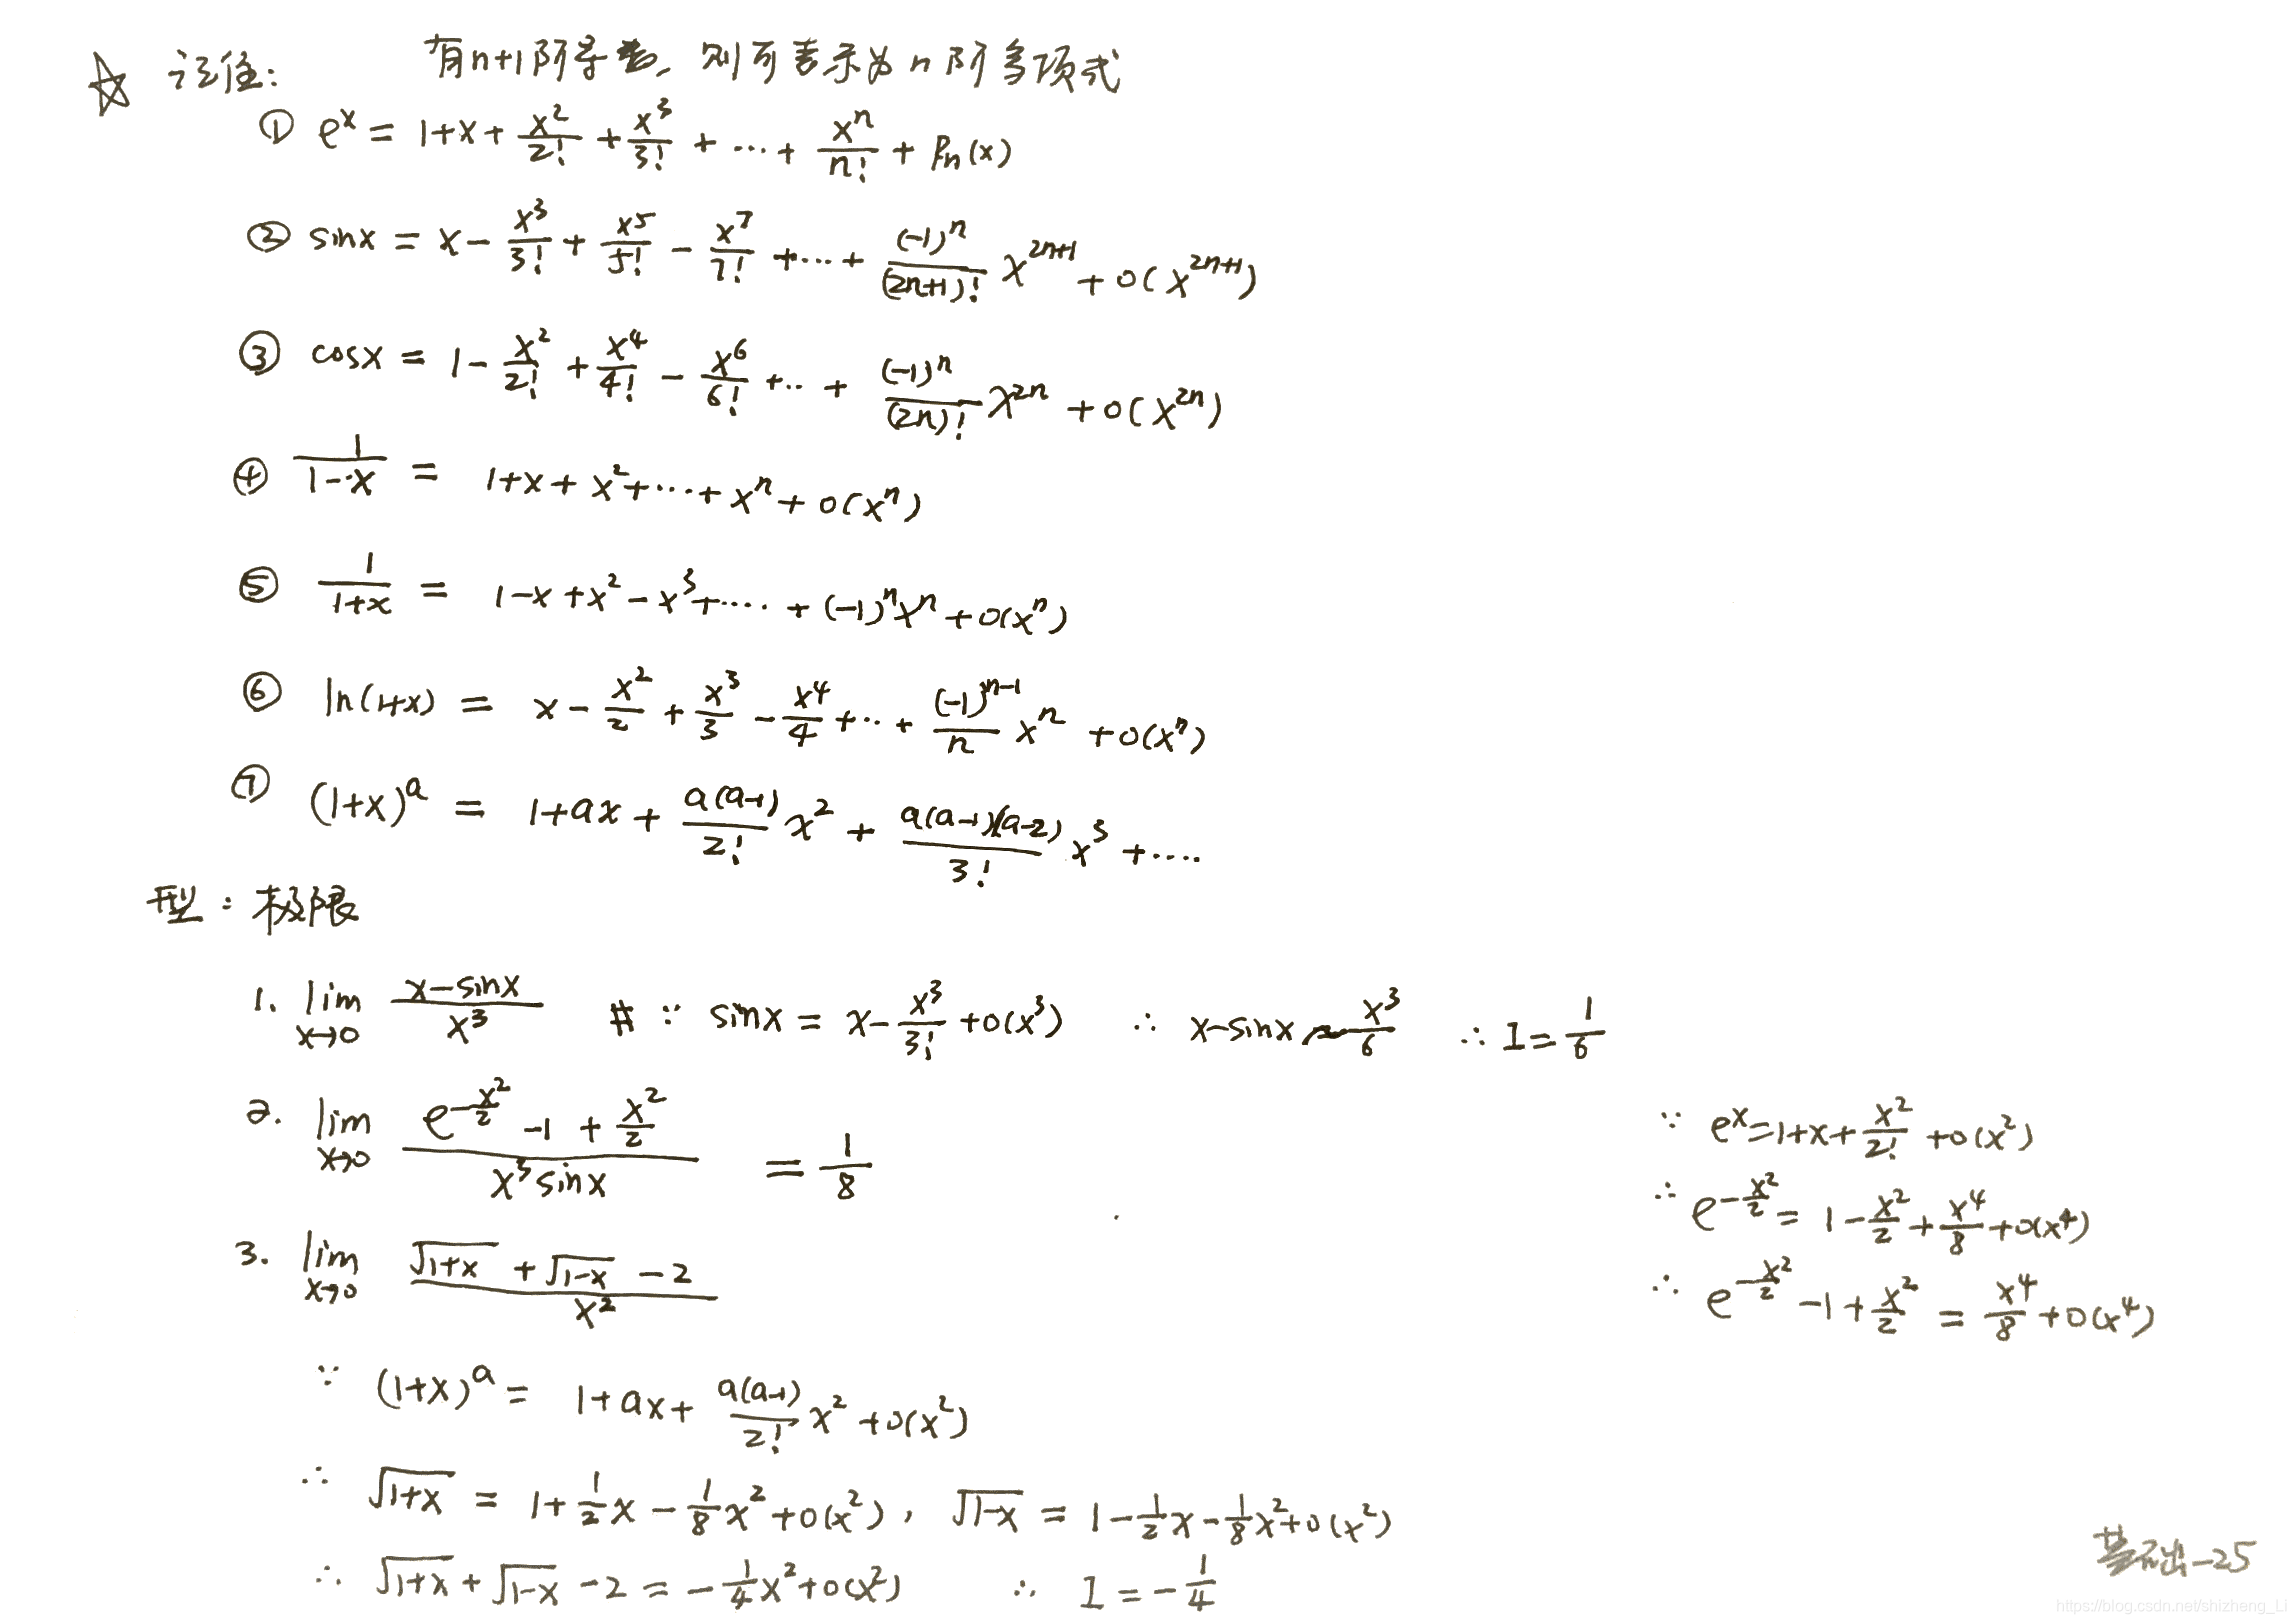 ☆ 记住: 有n+1阶导数, 则可表示为n阶多项式
① e^x = 1+x+x^2/2!+x^3/3!+⋯+x^n/n!+Pn(x)
② sinx = x-x^3/3!+x^5/5!-x^7/7!+⋯+(-1)^n/(2n+1)! x^(2n+1)+o(x^(2n+1))
③ cosx = 1-x^2/2!+x^4/4!-x^6/6!+⋯+(-1)^n/(2n)! x^(2n)+o(x^(2n))
④ 1/(1-x) = 1+x+x^2+⋯+x^n+o(x^n)
⑤ 1/(1+x) = 1-x+x^2-x^3+⋯+(-1)^n x^n+o(x^n)
⑥ ln(1+x) = x-x^2/2+x^3/3-x^4/4+⋯+(-1)^(n-1)/n x^n+o(x^n)
⑦ (1+x)^a = 1+ax+a(a-1)/2! x^2+a(a-1)(a-2)/3! x^3+⋯
型: 极限
1. lim x→0 (x-sinx)/x^3 # ∵ sinx = x-x^3/3!+o(x^3) ∴ x-sinx ~ x^3/6 ∴ I=1/6
2. lim x→0 (e^(-x^2/2)-1+x^2/2)/(x^3 sinx) = 1/8
∵ e^x=1+x+x^2/2!+o(x^2)
∴ e^(-x^2/2) = 1-x^2/2+x^4/8+o(x^4)
∴ e^(-x^2/2)-1+x^2/2 = x^4/8+o(x^4)
3. lim x→0 (√(1+x)+√(1-x)-2)/x^2
∵ (1+x)^a = 1+ax+a(a-1)/2! x^2+o(x^2)
∴ √(1+x) = 1+1/2 x-1/8 x^2+o(x^2), √(1-x) = 1-1/2 x-1/8 x^2+o(x^2)
∴ √(1+x)+√(1-x)-2 = -1/4 x^2+o(x^2) ∴ I=-1/4
基础-25
https://blog.csdn.net/shizheng_Li